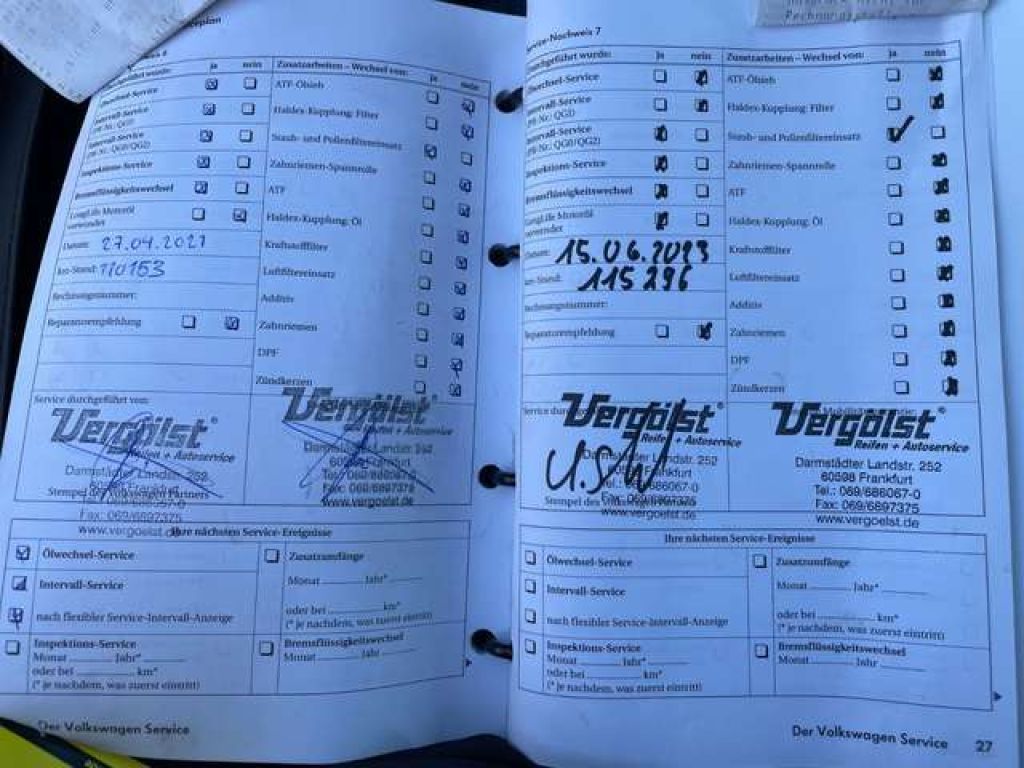 Rechnungsstelle
ja nein Zusatzarbeiten – Wechsel von: ja nein
Ölwechsel-Service ATF-Ölsieb
Intervall-Service
(PR-Nr.: QG1) Haldex-Kupplung: Filter
Intervall-Service
(PR-Nr.: QG0/QG2) Staub- und Pollenfiltereinsatz
Inspektions-Service Zahnriemen-Spannrolle
Bremsflüssigkeitswechsel ATF
LongLife Motoröl
verwendet Haldex-Kupplung: Öl
Datum: 27.04.2021 Kraftstofffilter
km-Stand: 110153 Luftfiltereinsatz
Rechnungsnummer: Additiv
Reparaturempfehlung Zahnriemen
DPF
Zündkerzen
Service durchgeführt von:
Vergölst
Reifen + Autoservice
Darmstädter Landstr. 252
Stempel des Volkswagen Partners
Fax: 069/6897375
www.vergoelst.de
Vergölst
Reifen + Autoservice
Darmstädter Landstr. 252
60598 Frankfurt
Tel.: 069/686067-0
Fax: 069/6897375
www.vergoelst.de
Ihre nächsten Service-Ereignisse
Ölwechsel-Service Zusatzumfänge
Intervall-Service Monat Jahr*
nach flexibler Service-Intervall-Anzeige oder bei km*
(* je nachdem, was zuerst eintritt)
Inspektions-Service Bremsflüssigkeitswechsel
Monat Jahr* Monat Jahr
oder bei km*
(* je nachdem, was zuerst eintritt)
Der Volkswagen Service
Service-Nachweis 7
Durchgeführt wurde: ja nein Zusatzarbeiten – Wechsel von: ja nein
Ölwechsel-Service ATF-Ölsieb
Intervall-Service
(PR-Nr.: QG1) Haldex-Kupplung: Filter
Intervall-Service
(PR-Nr.: QG0/QG2) Staub- und Pollenfiltereinsatz
Inspektions-Service Zahnriemen-Spannrolle
Bremsflüssigkeitswechsel ATF
LongLife Motoröl
verwendet Haldex-Kupplung: Öl
Datum: 15.06.2023 Kraftstofffilter
km-Stand: 115296 Luftfiltereinsatz
Rechnungsnummer: Additiv
Reparaturempfehlung Zahnriemen
DPF
Zündkerzen
Vergölst
Reifen + Autoservice
Darmstädter Landstr. 252
Stempel des Volkswagen Partners
Fax: 069/6897375
www.vergoelst.de
Vergölst
Reifen + Autoservice
Darmstädter Landstr. 252
60598 Frankfurt
Tel.: 069/686067-0
Fax: 069/6897375
www.vergoelst.de
Ihre nächsten Service-Ereignisse
Ölwechsel-Service Zusatzumfänge
Intervall-Service Monat Jahr*
nach flexibler Service-Intervall-Anzeige oder bei km*
(* je nachdem, was zuerst eintritt)
Inspektions-Service Bremsflüssigkeitswechsel
Monat Jahr* Monat Jahr
oder bei km*
(* je nachdem, was zuerst eintritt)
Der Volkswagen Service 27